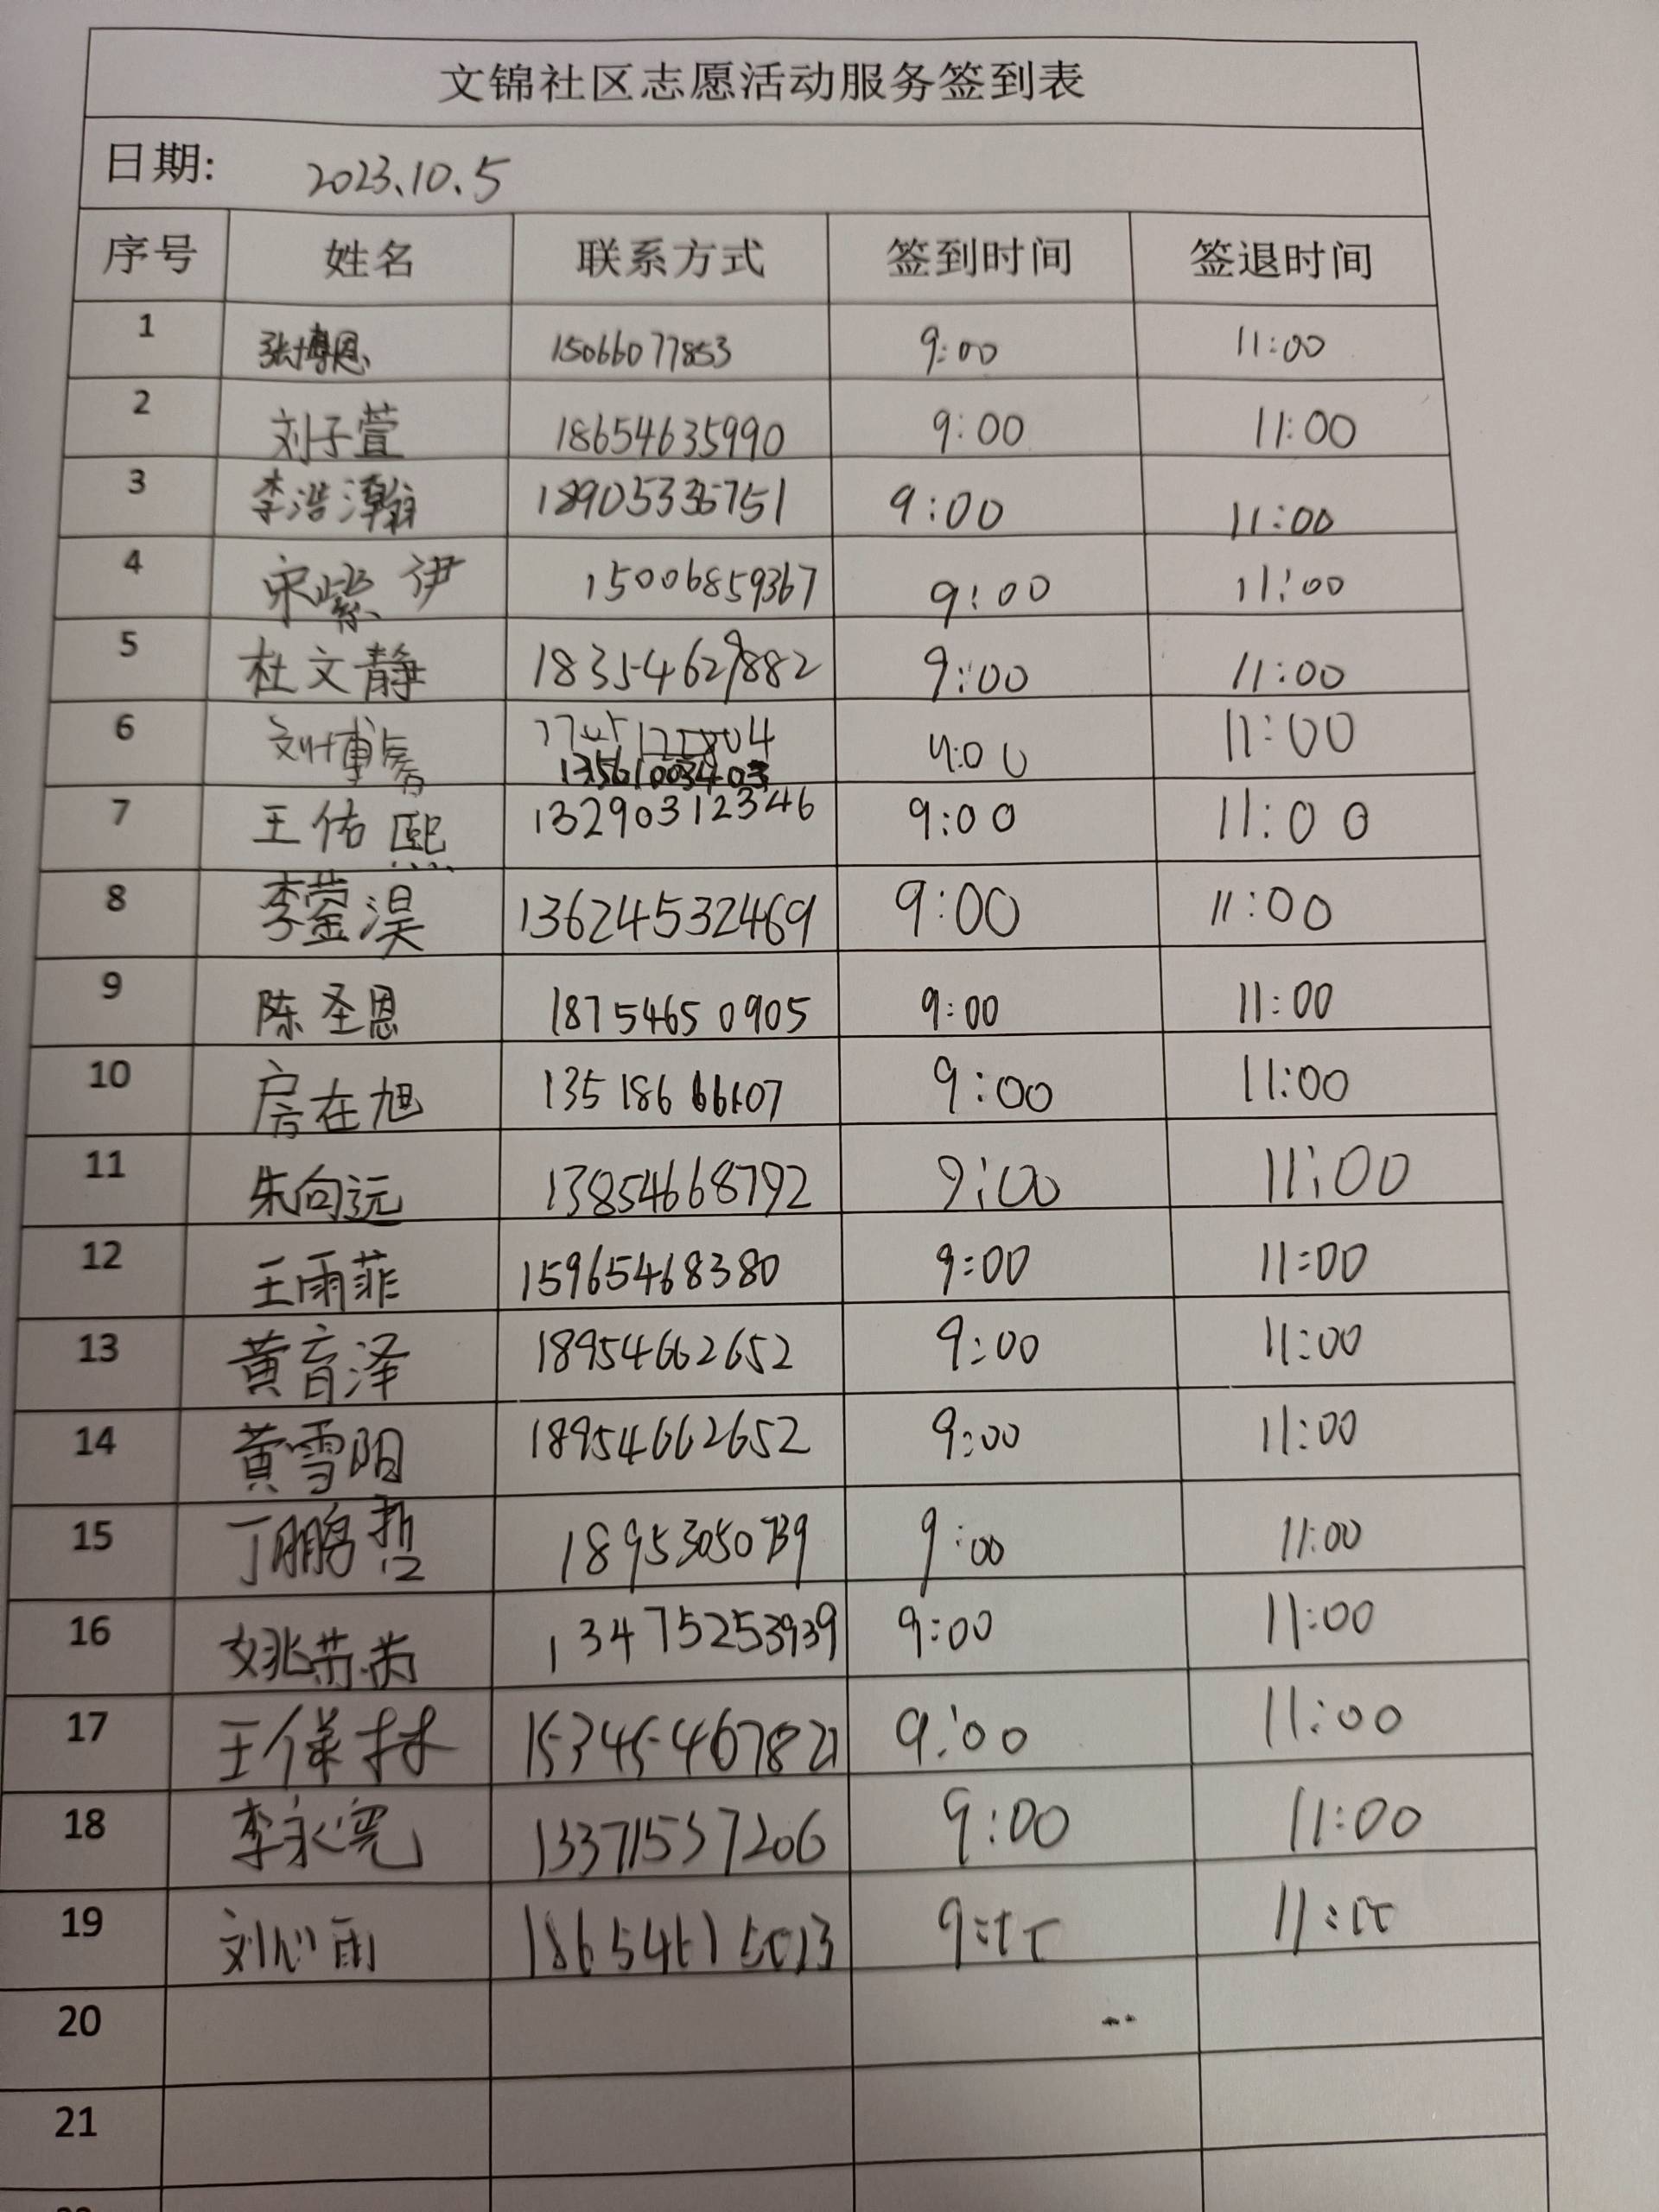 文锦社区志愿活动服务签到表
日期: 2023.10.5
序号 姓名 联系方式 签到时间 签退时间
1 张博恩 15066077853 9:00 11:00
2 刘子萱 18654635990 9:00 11:00
3 李浩瀚 18905336751 9:00 11:00
4 宋紫伊 15006859367 9:00 11:00
5 杜文静 18354629882 9:00 11:00
6 刘博 9:00 11:00
7 王佑熙 13290312346 9:00 11:00
8 李蓥淏 13624532469 9:00 11:00
9 陈圣恩 18754650905 9:00 11:00
10 房在旭 9:00 11:00
11 朱向远 13854668792 9:00 11:00
12 王雨菲 15965468380 9:00 11:00
13 黄育泽 18954662652 9:00 11:00
14 黄雪阳 18954662652 9:00 11:00
15 丁鹏哲 18953050739 9:00 11:00
16 姚芮芮 13475253939 9:00 11:00
17 王保林 15345467821 9:00 11:00
18 李永亮 13371537206 9:00 11:00
19 刘心雨
20
21